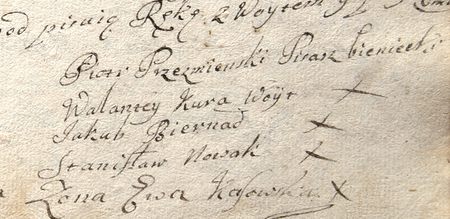 pod pisuię Rękę z Woytem
Piotr Przezmienski Pisarz bieniecki
Walantey Kura Woyt X
Jakub Biernad X
Stanisław Nowak X
Zona Ewa Kasowska X